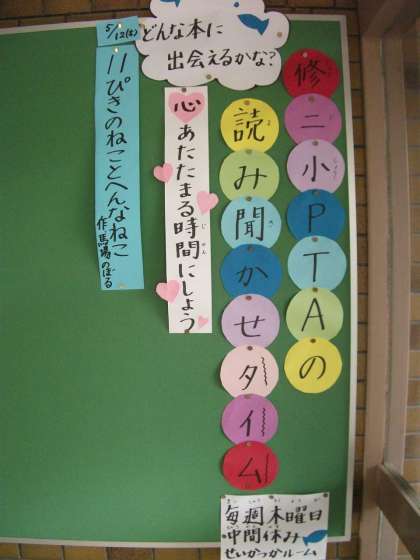 どんな本に
出会えるかな?
修二小PTAの
読み聞かせタイム
心あたたまる時間にしよう
5/12(木)
11ぴきのねことへんなねこ
作 馬場のぼる
毎週木曜日
中間休み
せいかつかルーム